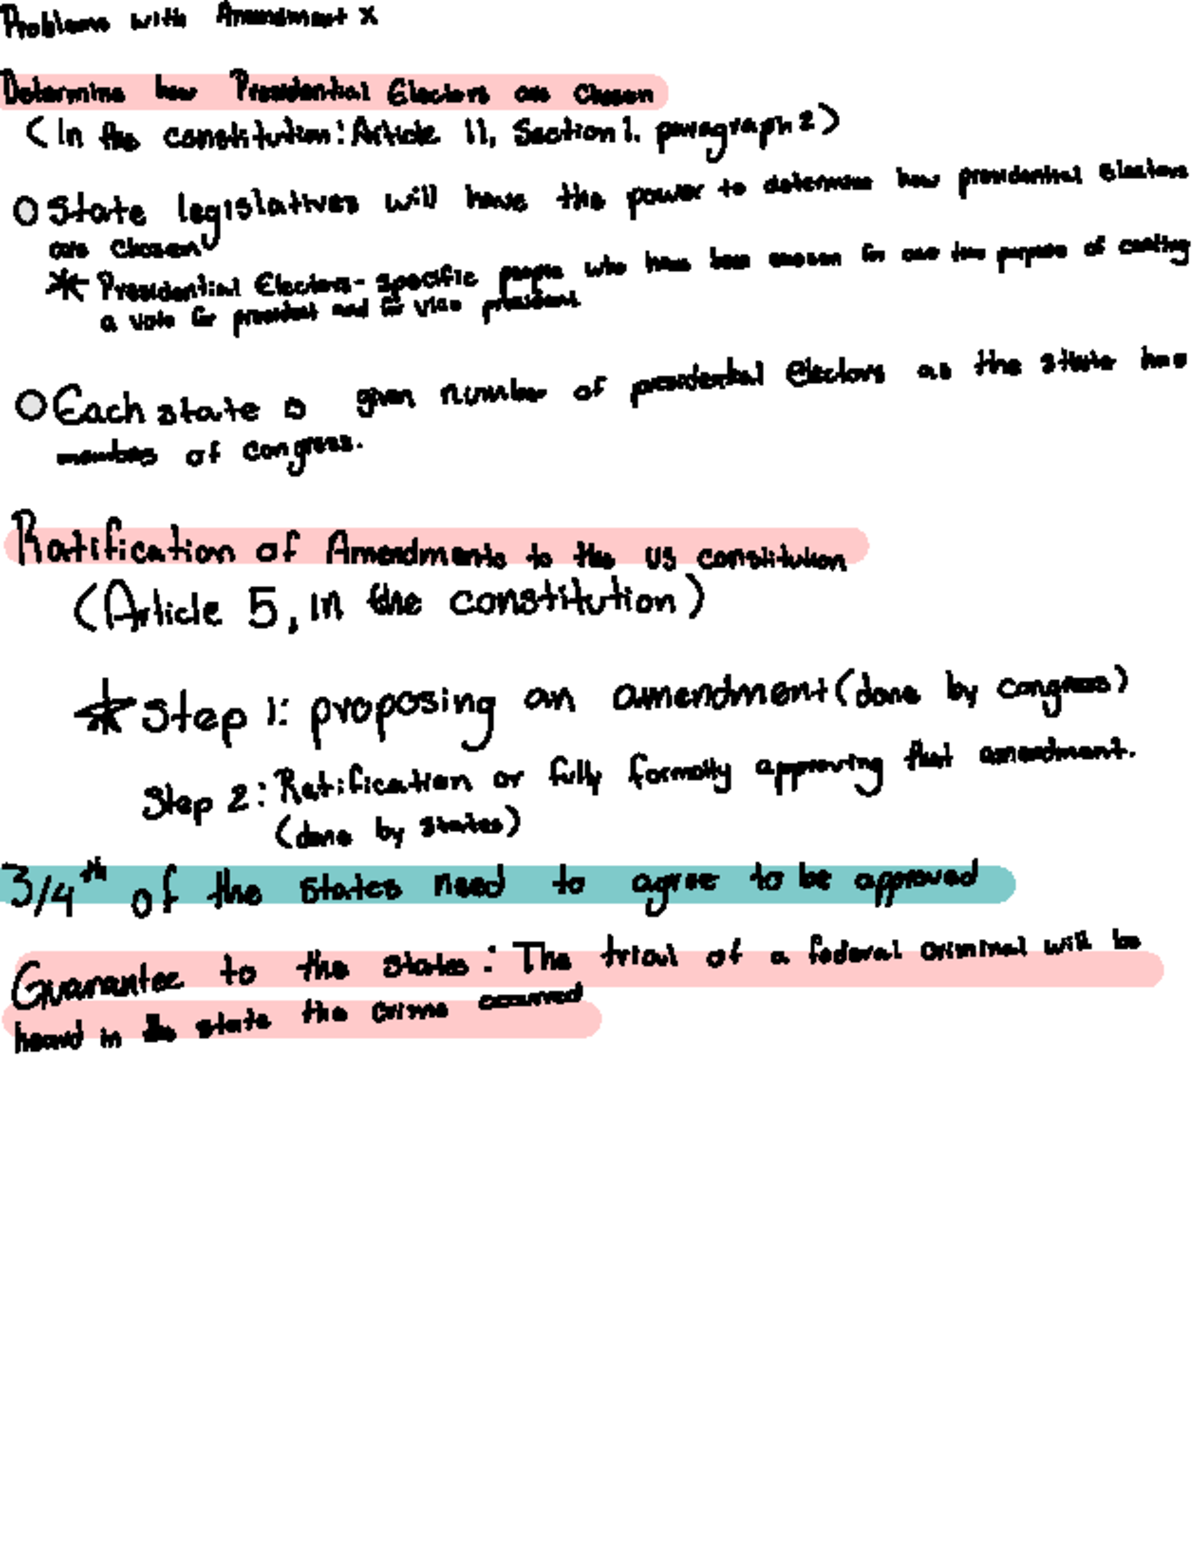 Problems with Amendment X
Determine how Presidential Electors are Chosen
(In the constitution: Article 11, Section 1. paragraph 2)
State legislatives will have the power to determine how presidential Electors
are Chosen
* Presidential Electors- specific people who have been chosen for one two purpose of casting
a vote for president and for vice president
Each state is given number of presidential Electors as the state has
members of Congress.
Ratification of Amendments to the US constitution
(Article 5, in the constitution)
* Step 1: proposing an amendment (done by congress)
Step 2: Ratification or fully formally approving that amendment.
(done by states)
3/4th of the states need to agree to be approved
Guarantee to the states: The trial of a federal criminal will be
heard in the state the crime occurred